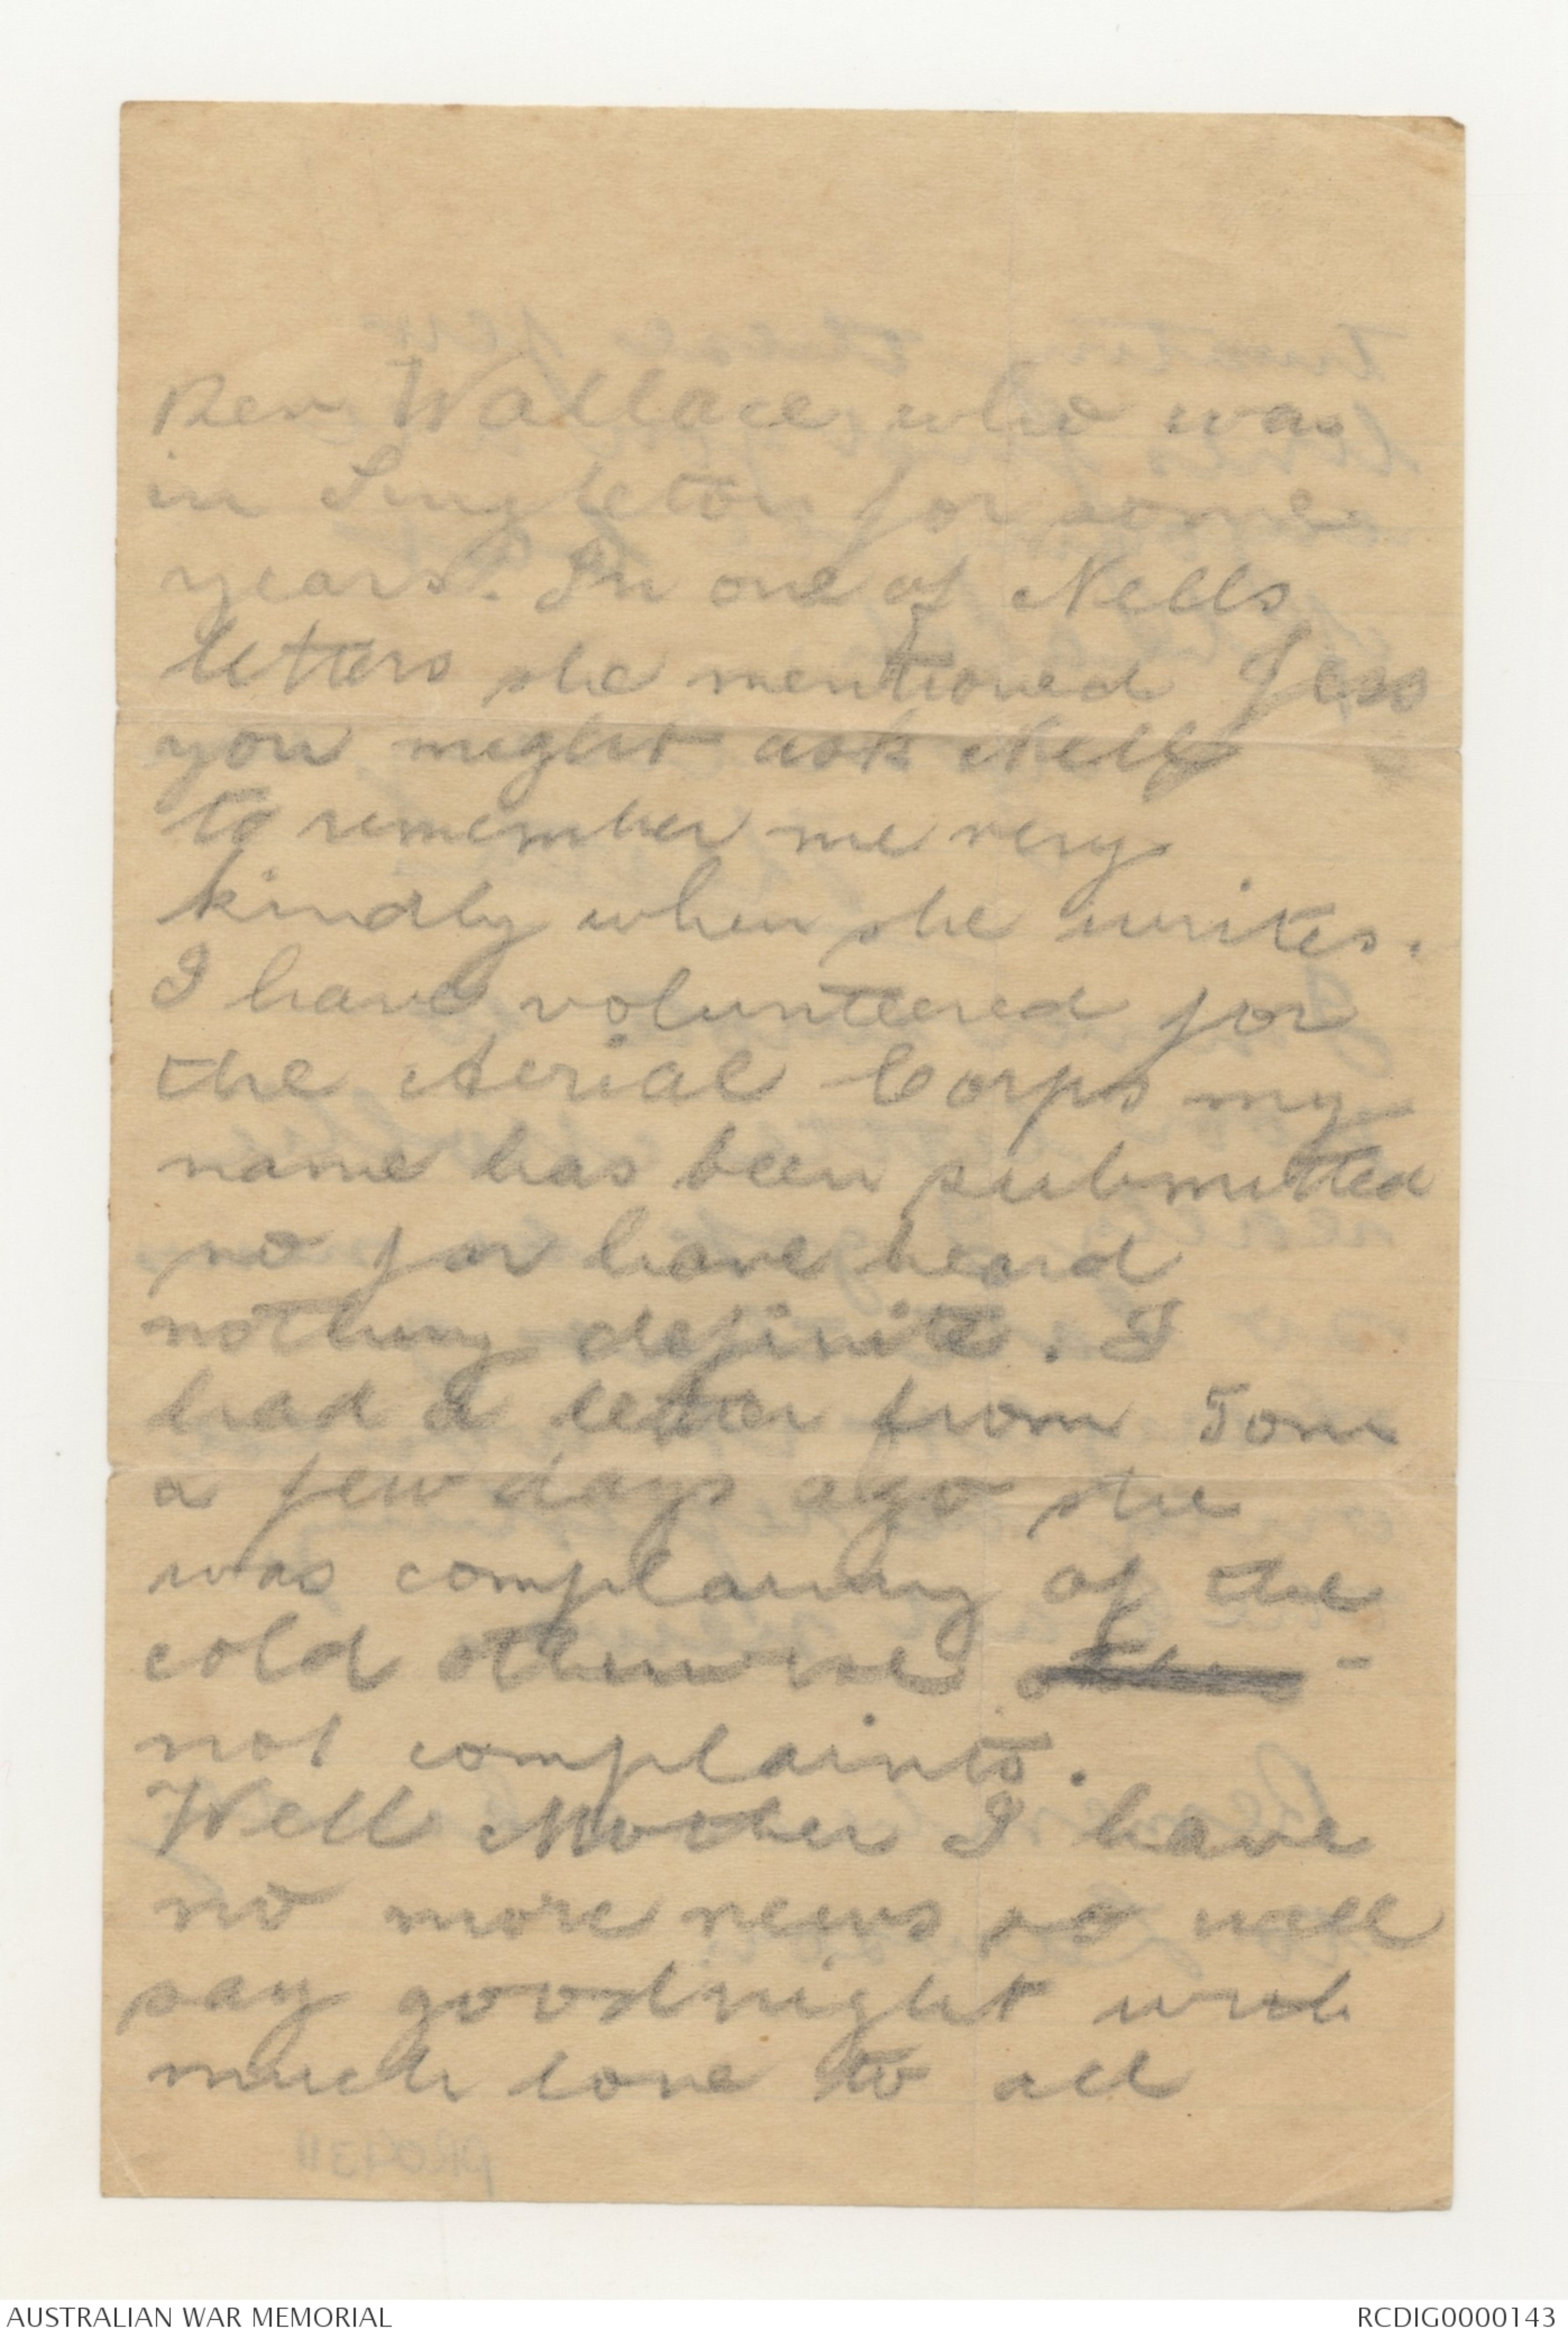 Rev Wallace who was
in Singleton for some
years. In one of Nells
letters she mentioned Jess
you might ask Nell
to remember me very
kindly when she writes.
I have volunteered for
the Aerial Corps my
name has been submitted
so far have heard
nothing definite. I
had a letter from Tom
a few days ago she
was complaining of the
cold otherwise -
not complaints.
Well Mother I have
no more news so will
say goodnight with
much love to all
AUSTRALIAN WAR MEMORIAL
RCDIG0000143